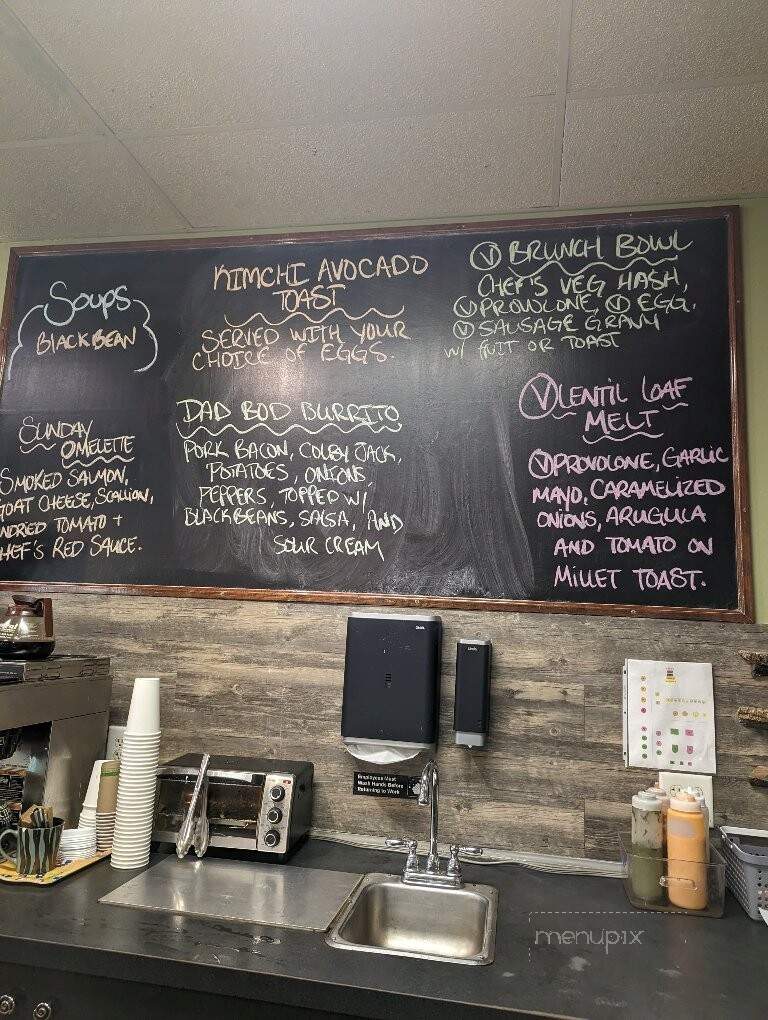 Soups
BLACK BEAN
KIMCHI AVOCADO
TOAST
SERVED WITH YOUR
CHOICE OF EGGS.
Ⓥ BRUNCH BOWL
CHEF'S VEG HASH,
Ⓥ PROVOLONE, Ⓥ EGG,
Ⓥ SAUSAGE GRAVY
W/ FRUIT OR TOAST
SUNDAY
OMELETTE
SMOKED SALMON,
GOAT CHEESE, SCALLION,
NDRIED TOMATO +
HEF'S RED SAUCE.
DAD BOD BURRITO
PORK BACON, COLBY JACK,
POTATOES, ONIONS,
PEPPERS, TOPPED W/
BLACK BEANS, SALSA, AND
SOUR CREAM
Ⓥ LENTIL LOAF
MELT
Ⓥ PROVOLONE, GARLIC
MAYO, CARAMELIZED
ONIONS, ARUGULA
AND TOMATO ON
MILLET TOAST.
Employees Must
Wash Hands Before
Returning to Work
menupix